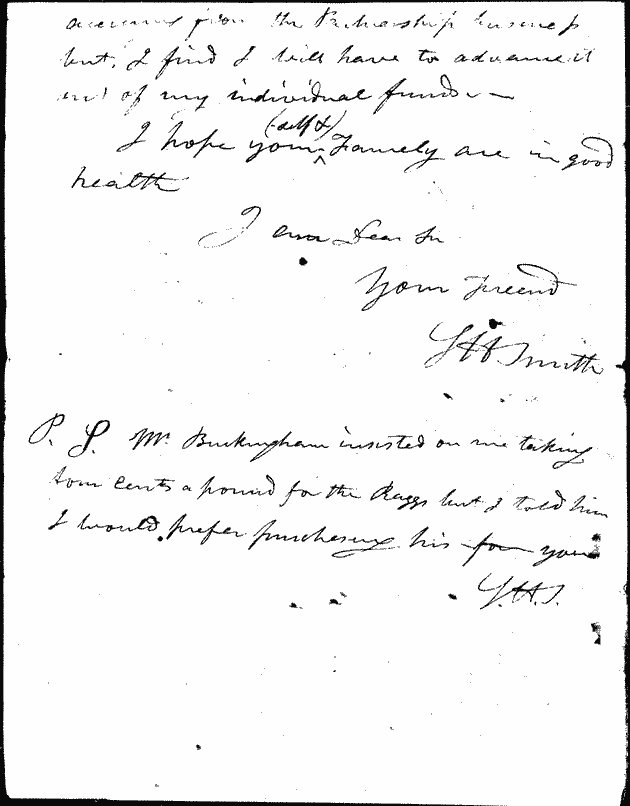 accruing from the Partnership business
but, I find I will have to advance it
out of my individual funds. —
I hope your (self &) Famely are in good
health
I am Dear Sir
Your freend
S H Smith
P. S. Mr Buckingham insisted on me taking
four cents a pound for the Raggs but I told him
I would prefer purchasing his for you
S. H. S.